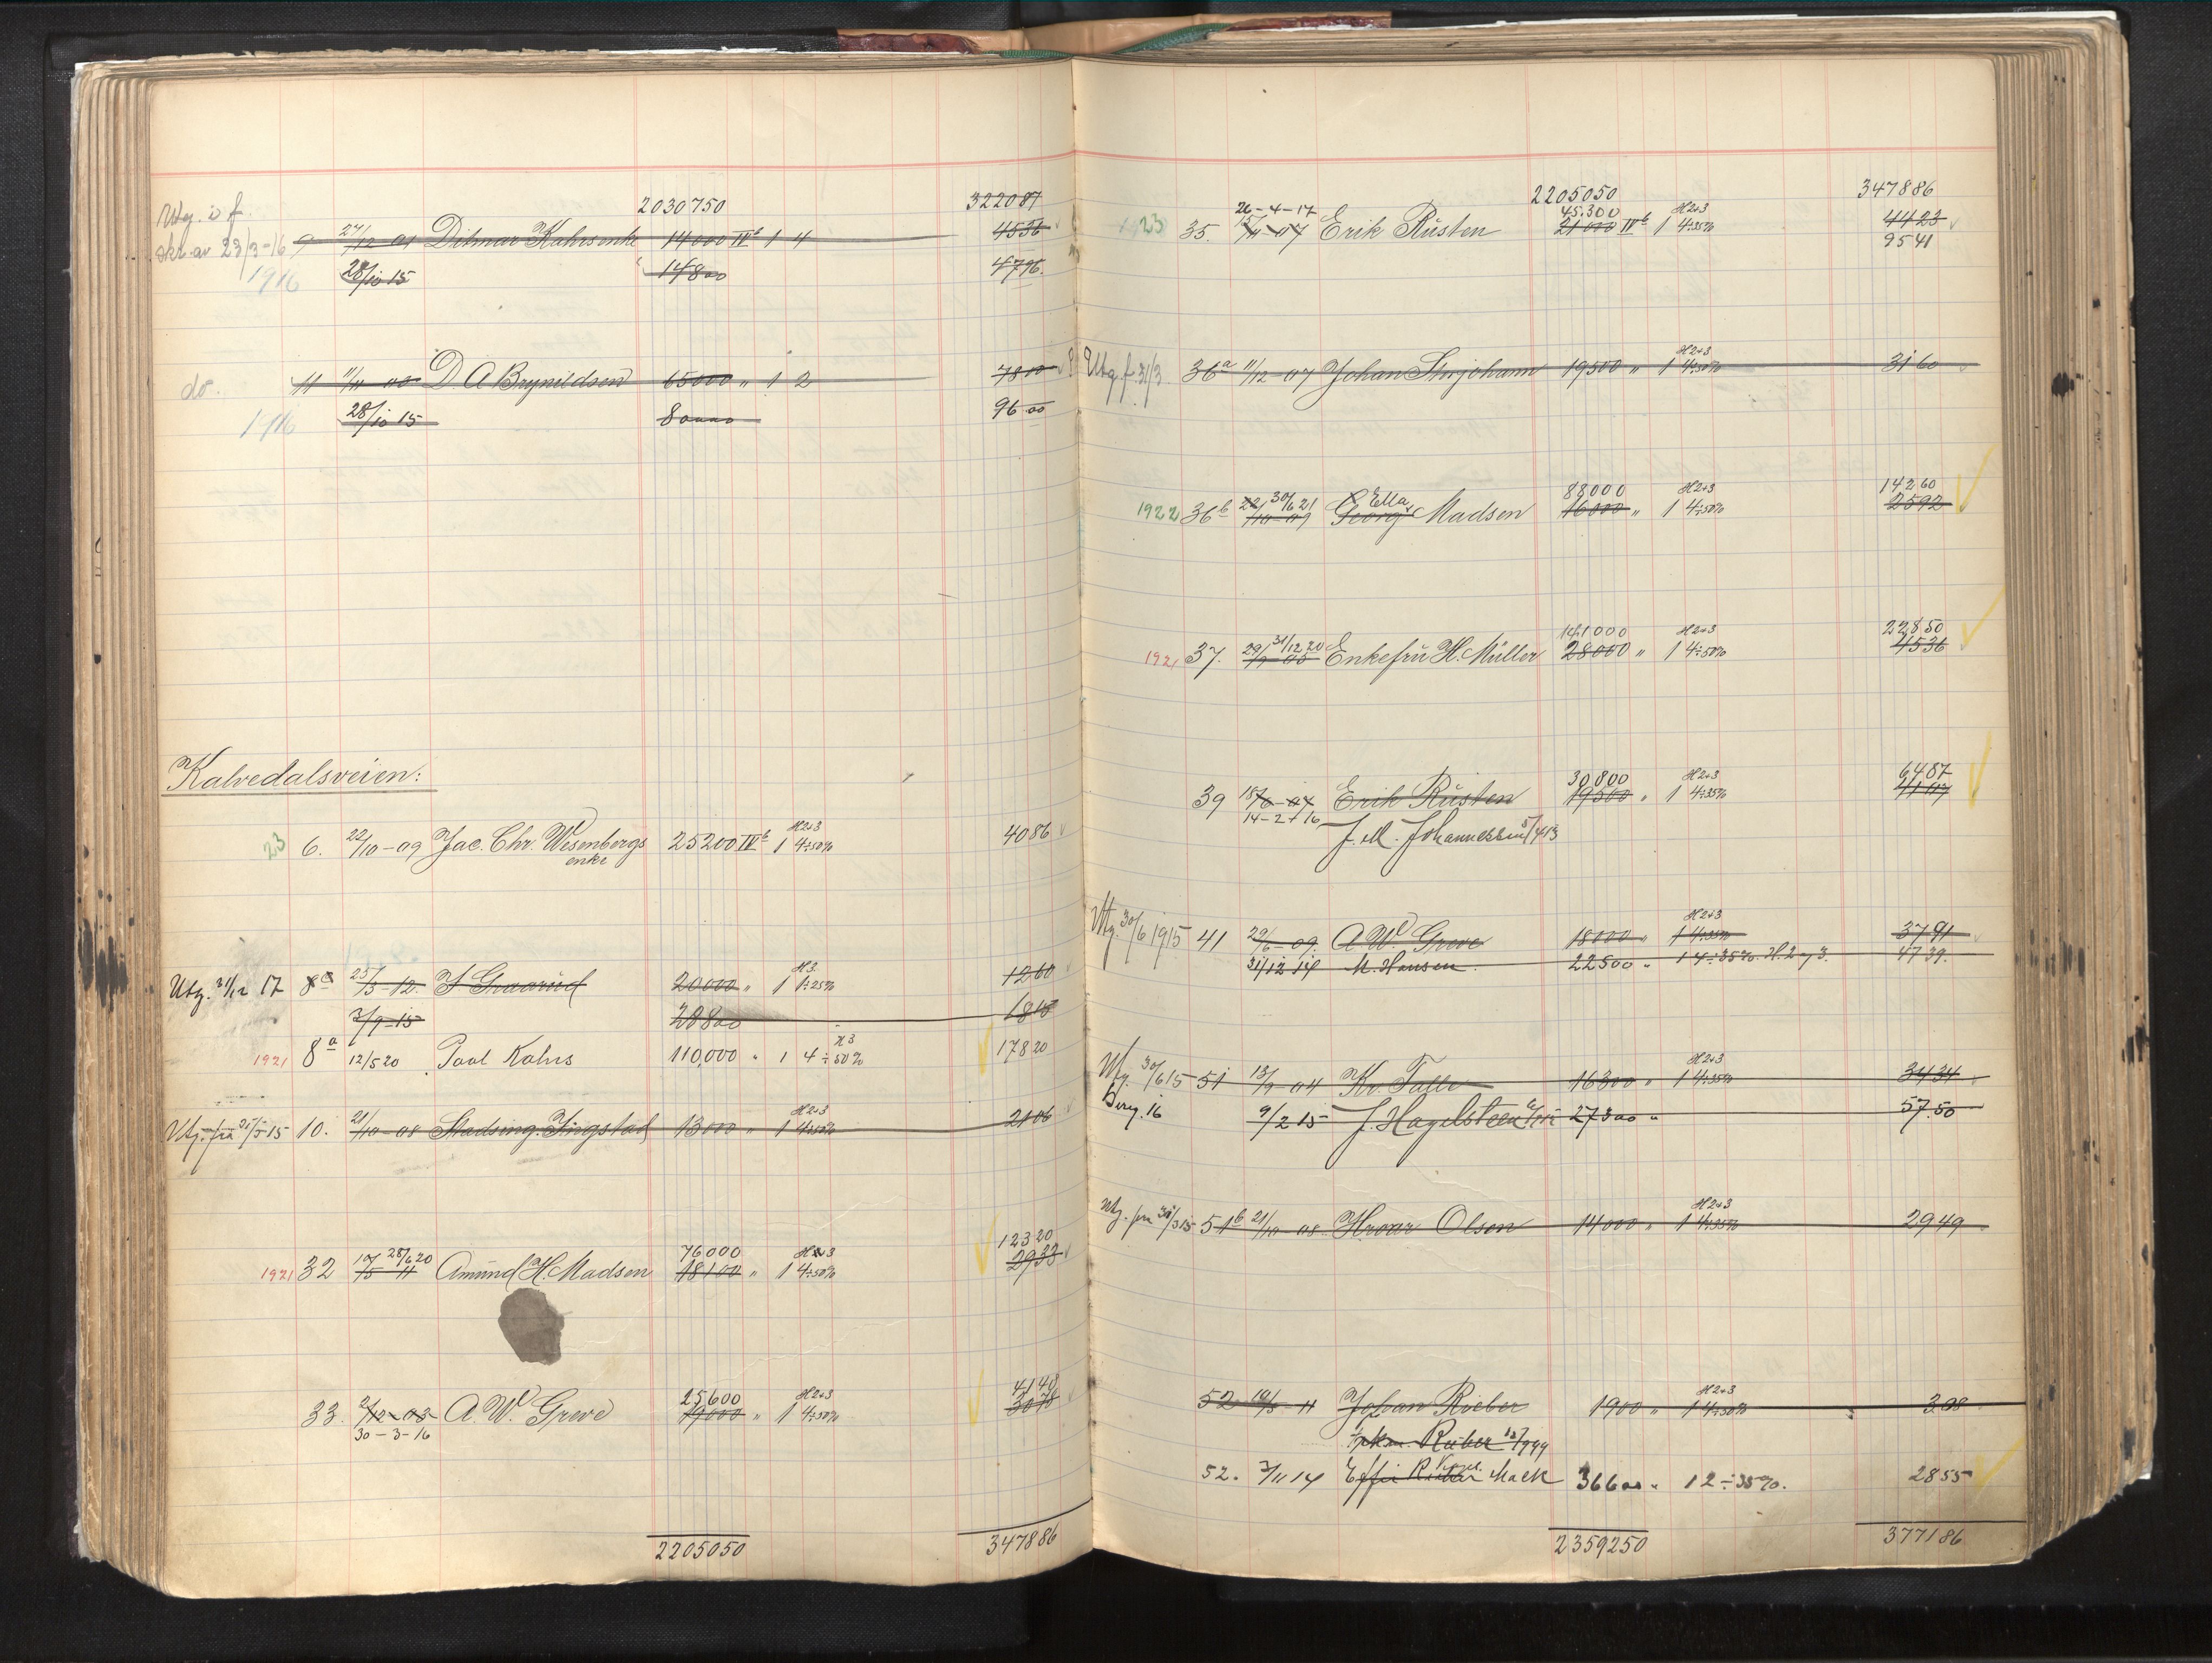 2030750 322087
Utg. i f.
skr. av 23/3-16 9 27/12-01 Ditmar Kahrs enke 14000 IVb 1 4 4536
1916 28/10 15 14800 4796
do. 11 11/11-00 D A Brynildsen 65000 " 1 2 7800
1916 28/10 15 80000 9600
Kalvedalsveien:
23 6. 22/10-09 Jac. Chr. Wesenbergs 25200 IVb 1 4÷50% H2+3 4086
enke
Utg. 31/12 17 8a 25/3-12. S Graarud 20000 " 1 1÷25% H3. 1260
3/9-15 28800 1810
1921 8a 12/5 20 Paul Kahrs 110,000 " 1 4÷50% H3 17820
Utg. fra 31/5 15 10. 21/10-08 Madsine Tingstad 13000 " 1 4÷50% H2+3 2106
28/6 20 76000 H2+3 12320
1921 32 10/5-11 Amund H. Madsen 18100 " 1 4÷50% 2933
25600 H2+3 4140
33. 2/12-03 A. W. Greve 19000 " 1 4÷50% 3078
30-3-16
2205050 347886
2205050 347886
26-4-17 45.300 H2+3
1923 35. 15/11-07 Erik Rusten 21000 IVb 1 4÷35% 4423
9541
H2+3
Utg. f. 31/3. 36a 11/12-07 Johan 19500 " 1 4÷50% 3160
30/6 21 Ella 88000 H2+3 14260
1922 36b 22/10-09 Georg Madsen 16000 " 1 4÷50% 2592
31/12 20 141000 H2+3 22850
1921 37. 29/9-05 Enkefru H. Müller 28000 " 1 4÷50% 4536
30800 H2+3 6487
39 18/6-07 Erik Rusten 19500 " 1 4÷35% 4107
14-2-16 J. M. Johannessen 5/4 13
H2+3
Utg. 30/6 1915 41 29/6-09. A W. Greve 18000 " 1 4÷35% 3791
31/12 14 M. Hansen. 22500 " 1 4÷35% H. 2 og 3. 4739.
H2+3
Utg. 30/6 15 51 13/9-04 Kr. Falle 16300 " 1 4÷35% 3434
Berg. 16 9/2 15 J. Hagelsteen 27300 " 57.50
H2+3
Utg. fra 31/3 15 51b 21/10-08 Hroar Olsen 14000 " 1 4÷35% 2949
H2+3
52 10/5-11 Johan Rieber 1900 " 1 4÷50% 308
Rieber
52. 3/11 14 Effie Rieber Mack 36600 " 1 2÷35%. 2855
2359250 377186